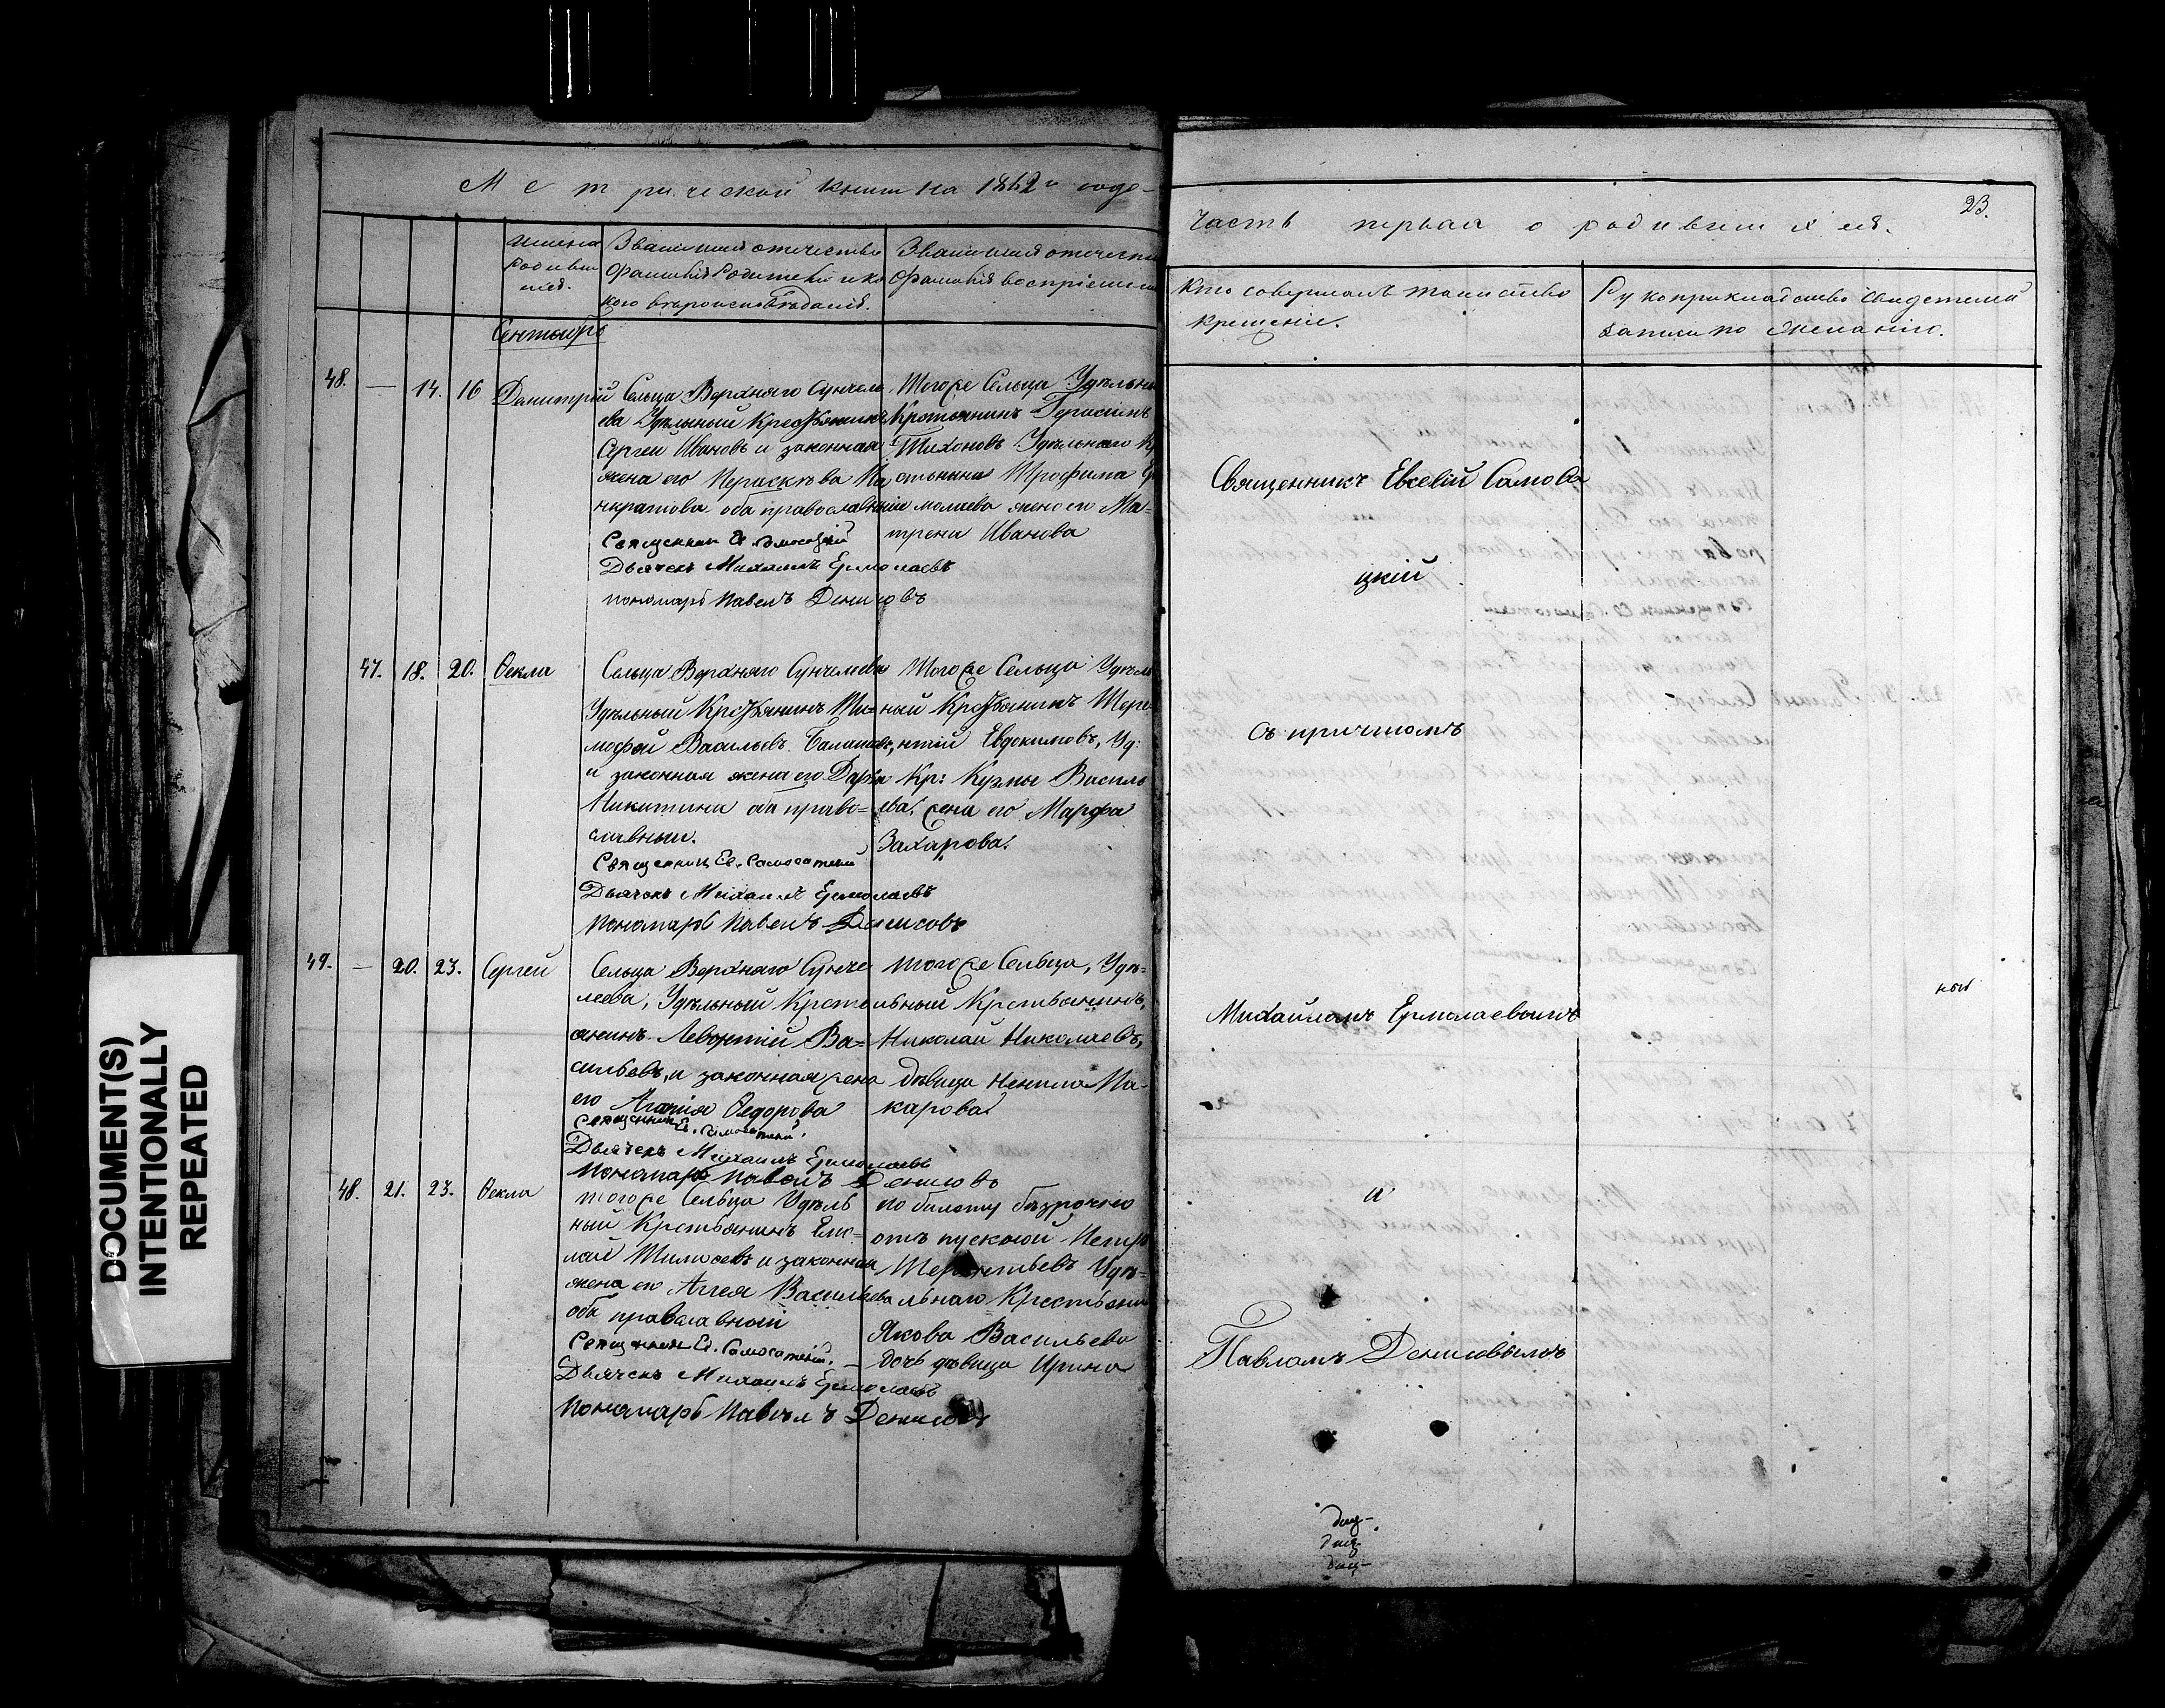 Метрической книги на 1862й годъ
Имена родивших ся.
Званiе имя отчество фамилiя родителей и ка кого вероисповѣданiя.
Званiе имя отчество фамилiя воспрiемни
Сентябрь
48. — 14. 16 Димитрiй
Сельца Верхняго Сунчеле
ева Удѣльный Крестьянинъ
Сергей Ивановъ и законная
жена его Перасковва Па
нкратова оба православнiи
Священник Ев. Самосатскiй
Дьячекъ Михаилъ Ермолаевъ
пономарь Павелъ Денисовъ
Тогоже Сельца Удѣльны
Крстьянинъ Герасимъ
Тихоновъ Удѣльнаго К
стьянина Трофима
молаева жена его Ма-
трена Иванова
47. 18. 20. Ѳекла
Сельца Верхняго Сунчелеева
Удѣльный Крестьянинъ Ти-
мофей Васильевъ
и законная жена его Дарiя
Никитина оба право=
славныи.
Священникъ Ев. Самосатскiй
Дьячекъ Михаилъ Ермолаевъ
Пономарь Павелъ Денисовъ
Тогоже Сельца Удѣль
ный Крестьянинъ Тере
нтiй Евдокимовъ, Уд:
Кр: Кузмы Василь
ева жена его Марфа
Захарова.
49. — 20. 23. Сергей
Сельца Верхняго Сунче
леева, Удѣльный Кресть
янинъ Левонтiй Ва=
сильевъ, и законная жена
его Агапiя Ѳедорова
Священникъ Ев. Самосатскiй.
Дьячекъ Михаилъ Ермолаевъ
Пономарь Павелъ Денисовъ
тогоже Сельца, Удѣ=
льный Крстьянинъ,
Николай Николаевъ,
дѣвица Ненила Ма-
карова.
48. 21. 23. Ѳекла
тогоже Сельца Удѣль
ный Крстьянинъ
и законная
жена его Васильева
оба православнiи
Священникъ Ев. Самосатскiй.
Дьячекъ Михаилъ Ермолаевъ
Пономарь Павелъ Денисовъ
по билету безрочно
отъ пускной Петръ
Терентьевъ Удѣ=
льнаго Крестьяни
Якова Васильева
дочь дѣвица Ирина
23.
Часть первая о родившихся.
Кто совершалъ таинство крещенiе.
Рукоприкладство свидетелей записи по желанiю.
Священникъ Евсевiй Самоса
цкiй
съ причтомъ
Михайломъ Ермолаевымъ
и
Павломъ Денисовымъ
DOCUMENT(S)
INTENTIONALLY
REPEATED